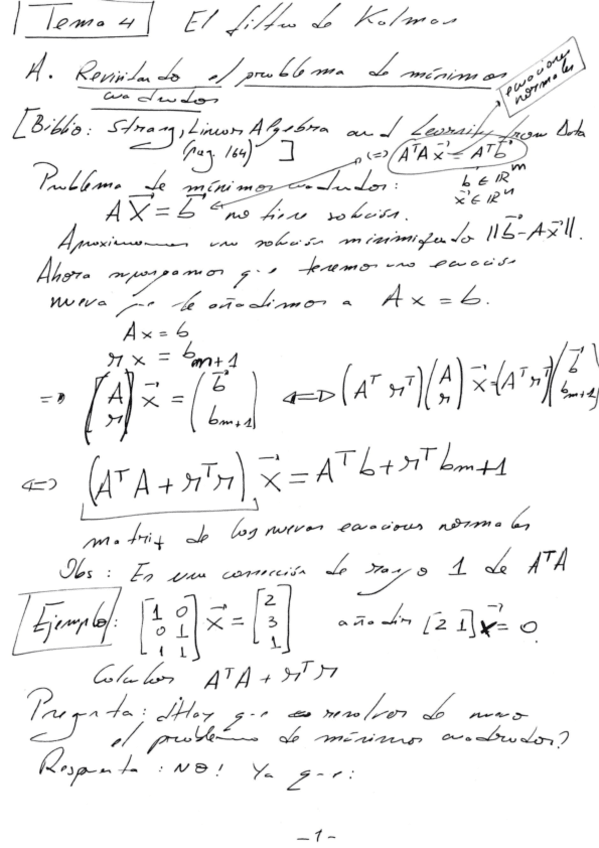 Tema 4 El filtro de Kalman
A. Revisitando el problema de mínimos
cuadrados
ecuaciones
normales
[Biblio: Strang, Linear Algebra and Learning from Data
(pag 164) ] (⇔) AᵀA x⃗ = Aᵀb⃗
Problema de mínimos cuadrados: b⃗ ∈ ℝᵐ
x⃗ ∈ ℝⁿ
A x⃗ = b⃗ no tiene solución.
Aproximamos una solución minimizando ||b⃗ - Ax⃗||.
Ahora supongamos que tenemos una ecuación
nueva que le añadimos a Ax = b.
Ax = b
r x = bm+1
⇒ (A r) x⃗ = (b⃗ bm+1) ⇔ (Aᵀ rᵀ)(A r) x⃗ = (Aᵀ rᵀ)(b⃗ bm+1)
⇔ (AᵀA + rᵀr) x⃗ = Aᵀb + rᵀbm+1
matriz de las nuevas ecuaciones normales
Obs: Es una corrección de rango 1 de AᵀA
Ejemplo: [1 0; 0 1; 1 1] x⃗ = [2; 3; 1] añadir [2 1] x⃗ = 0
Calculas AᵀA + rᵀr
Pregunta: ¿Hay que resolver de nuevo
el problema de mínimos cuadrados?
Respuesta: NO! Ya que:
-1-